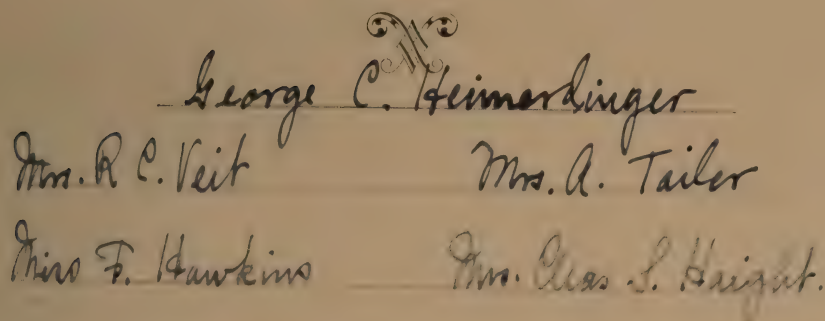 George C. Heimerdinger
Mrs. R C. Veit Mrs. A. Tailer
Miss F. Hawkins Mrs. Chas S. Haight.